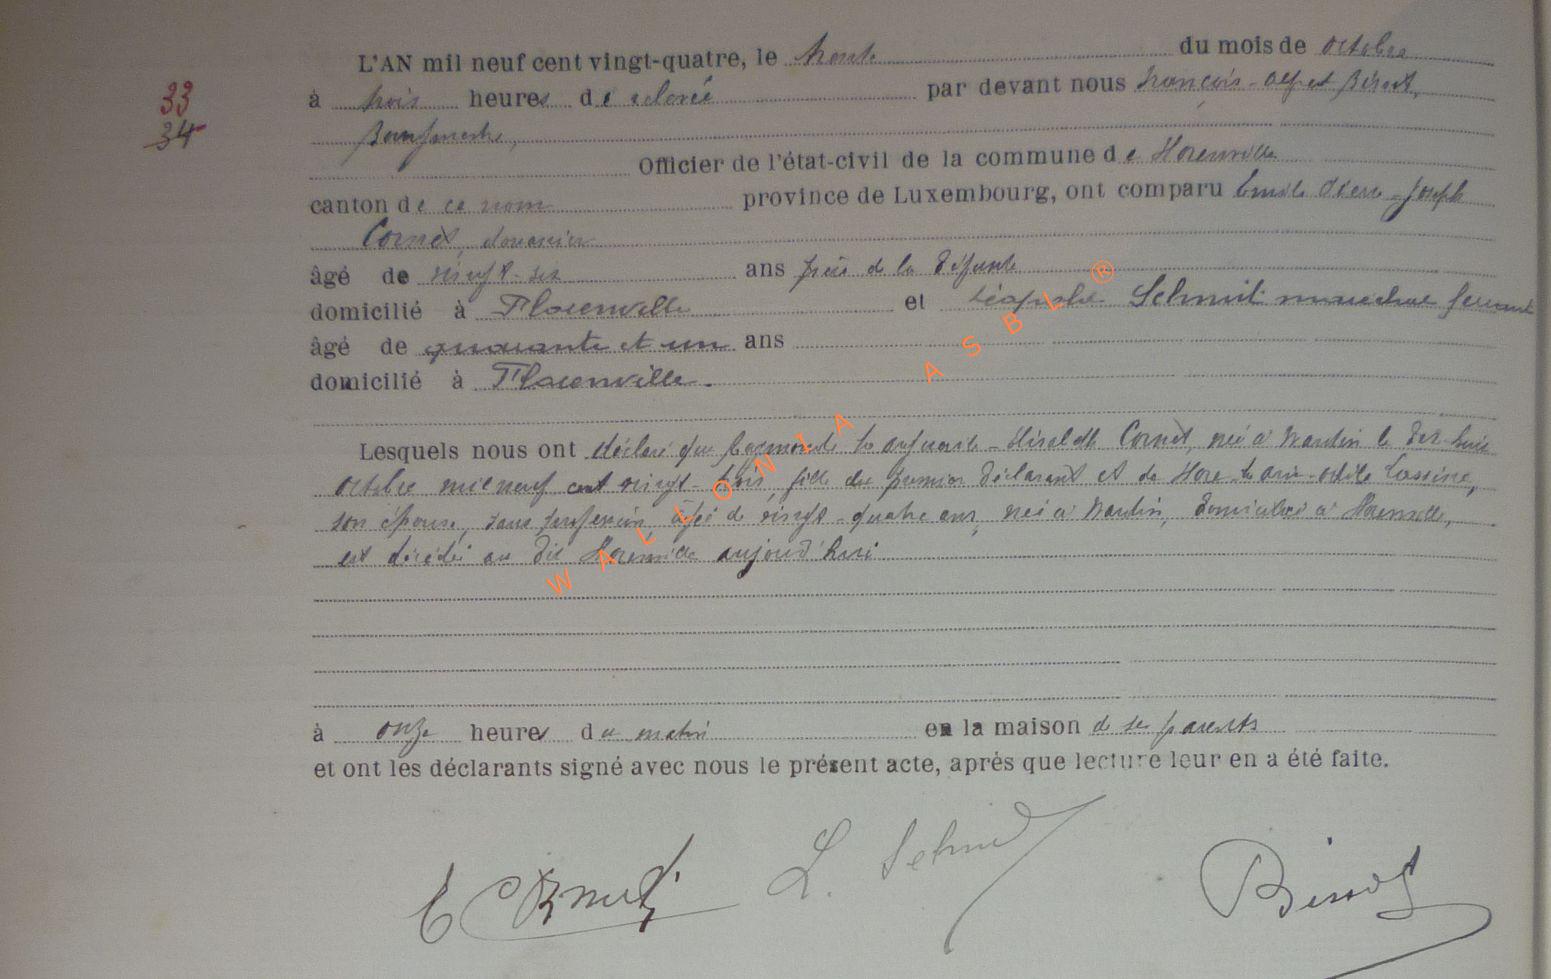 33
34
L'AN mil neuf cent vingt-quatre, le trente du mois de octobre
à trois heures de relevée par devant nous François-Alfred
Bourgmestre,
Officier de l'état-civil de la commune de Florenville
canton de ce nom province de Luxembourg, ont comparu Emile Joseph
Cornet, douanier
âgé de vingt-six ans père de la défunte
domicilié à Florenville et Léopold Schmit maréchal ferrant
âgé de quarante et un ans
domicilié à Florenville.
Lesquels nous ont déclaré que Raymonde Marguerite-Elisabeth Cornet, née à Wardin le dix-huit
octobre mil neuf cent vingt-trois, fille du premier déclarant et de Flore Marie-Odile
son épouse, sans profession, âgée de vingt-quatre ans, née à Wardin, domiciliée à Florenville,
est décédée au dit Florenville aujourd'hui
à onze heures du matin en la maison de ses parents
et ont les déclarants signé avec nous le présent acte, aprés que lecture leur en a été faite.
E Cornet
L. Schmit
WALLONIA ASBL ®